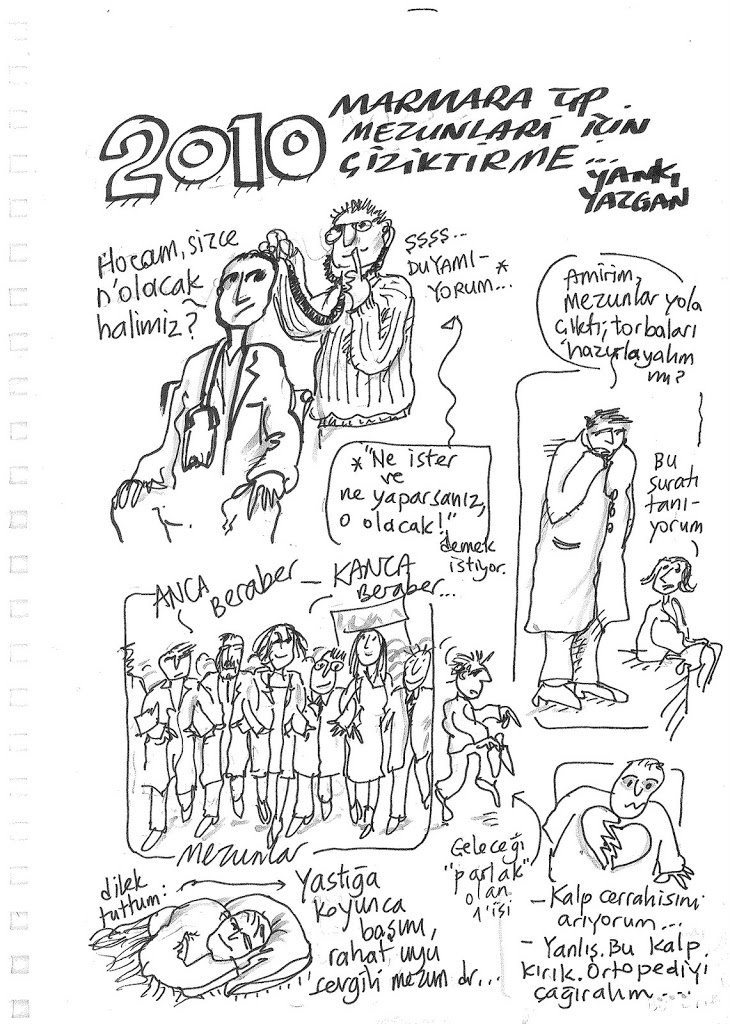 2010
MARMARA TIP
MEZUNLARI İÇİN
ÇİZİKTİRME...
YANKI
YAZGAN
Hocam, sizce
n'olacak
halimiz?
ŞŞŞŞ...
DUYAMI-
YORUM...*
*"Ne ister
ve
ne yaparsanız,
o olacak!"
demek
istiyor.
Amirim,
mezunlar yola
çıktı, torbaları
hazırlayalım
mı?
Bu
suratı
tanı-
yorum
ANCA Beraber – KANCA
Beraber...
mezunlar
Geleceği
"parlak"
olan
1'isi
– Kalp cerrahisini
arıyorum...
– Yanlış. Bu kalp
kırık. Ortopediyi
çağıralım....
dilek
tuttum:
Yastığa
koyunca
başını,
rahat uyu
sevgili mezun dr...